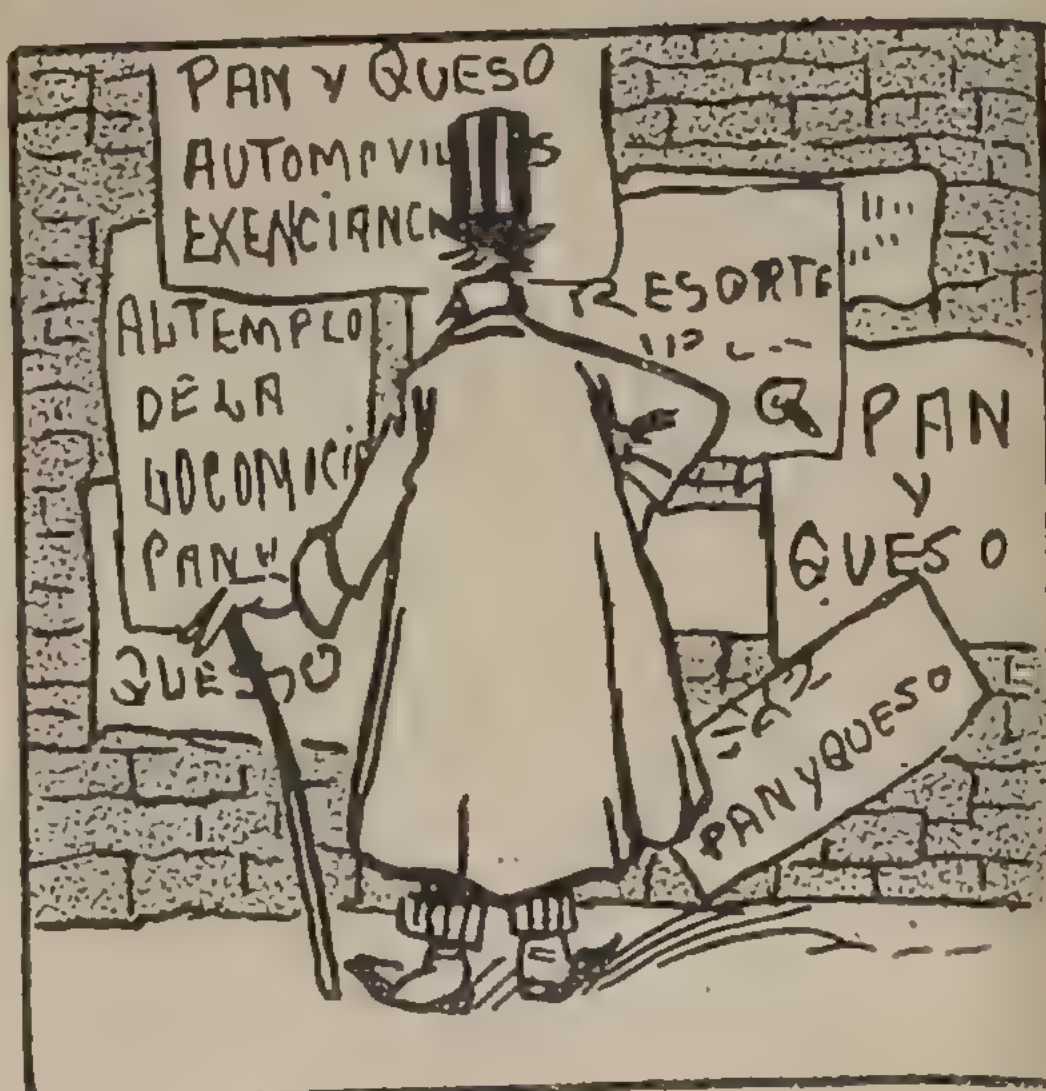 PAN Y QUESO
AUTOMOVIL
EXENCIANCA
AL TEMPLO
DE LA
LOCOMICIO
PAN Y
QUESO
RESORTE
PAN
Y
QUESO
PAN Y QUESO